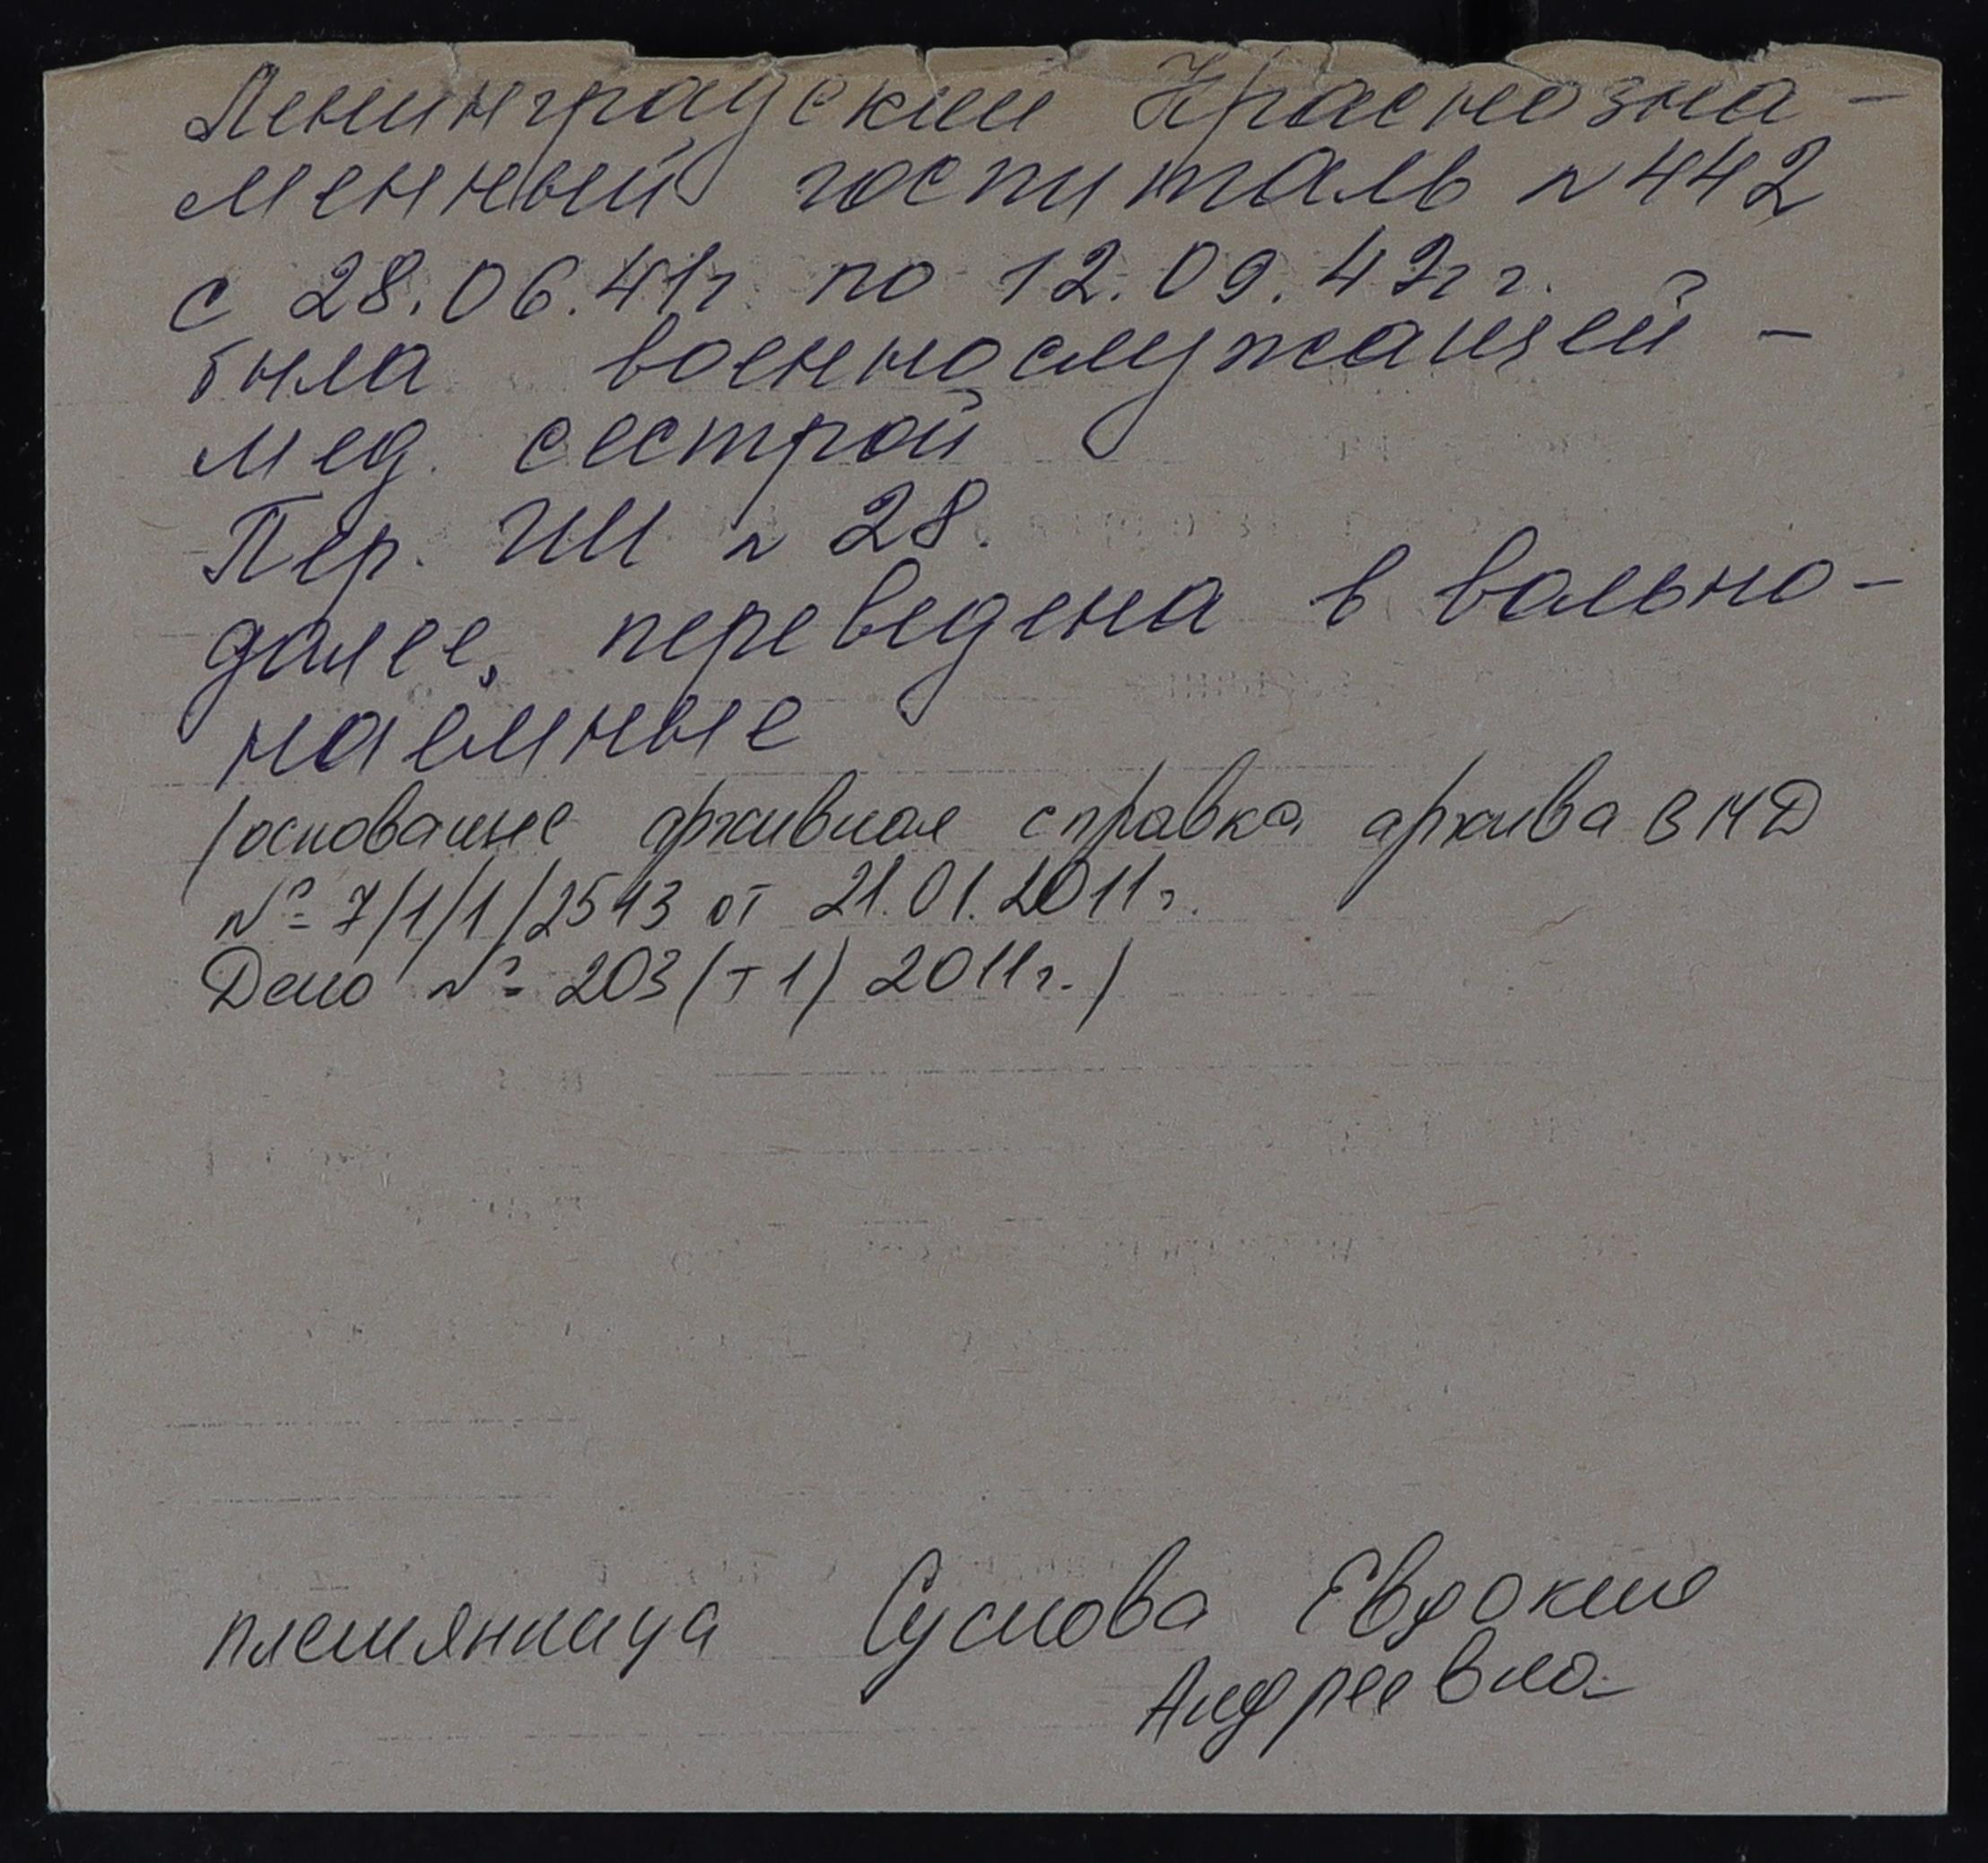 Ленинградский Краснозна-
менный госпиталь N 442
с 28.06.41г. по 12.09.42г г.
была военнослужащей -
мед. сестрой
Пер. N 28.
далее, переведена в вольно-
наёмные
/основание архивная справка архива ВМД
№ 7/1/1/2543 от 21.01.2011г.
Дело № 203 (т 1) 2011г./
племянница Суслова Евдокия
Андреевна